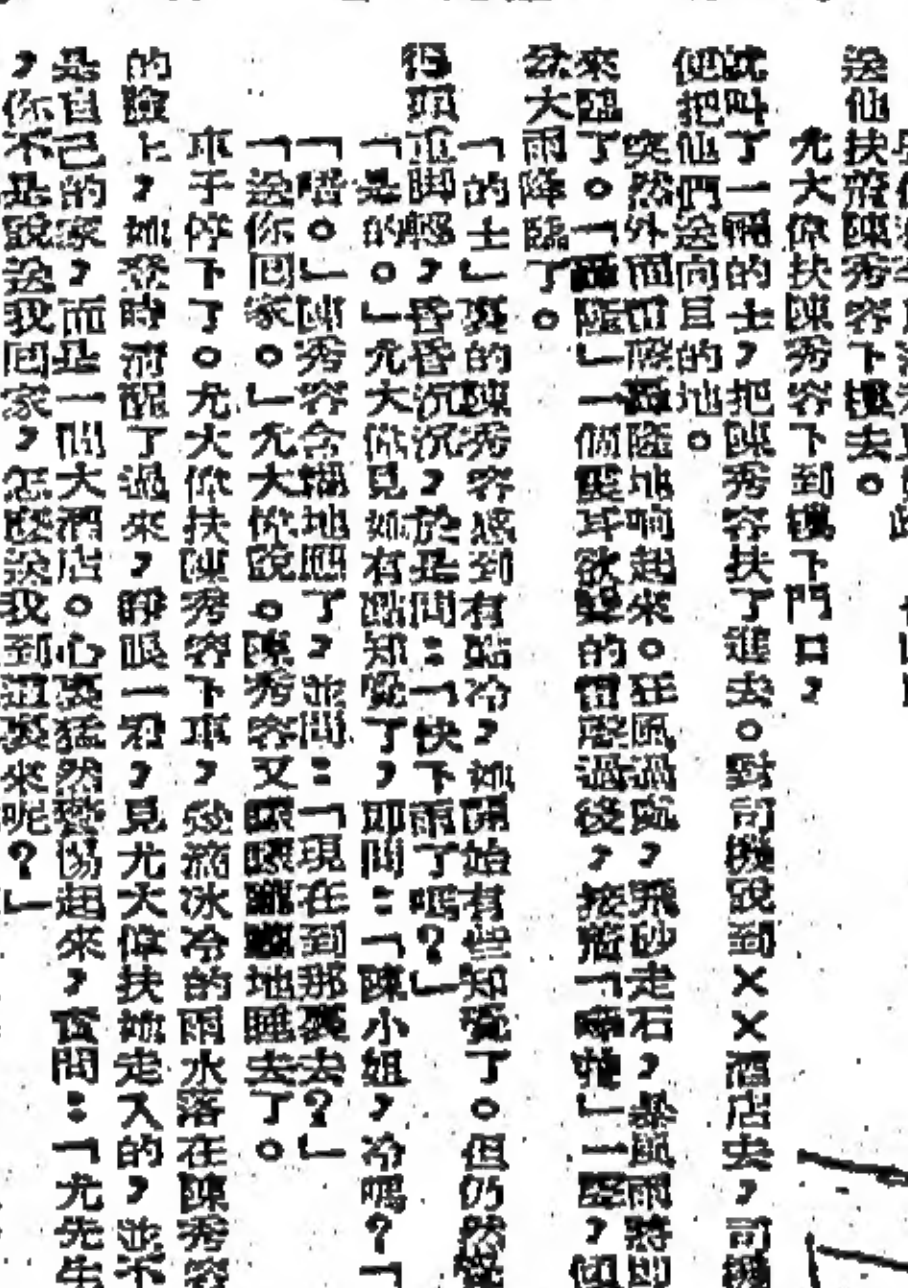 送他扶着陳秀容下樓去。
尤大偉扶陳秀容下到樓下門口,
就叫了一輛的士,把陳秀容扶了進去。對司機說到××酒店去,司機
便把他們送向目的地。
突然外面雷聲轟隆地响起來。狂風過處,飛砂走石,暴風雨將即
來臨了。「轟隆」一個震耳欲聾的雷聲過後,接着「嘩啦」一聲,傾
盆大雨降臨了。
「的士」裏的陳秀容感到有點冷,她開始有些知覺了。但仍然覺
得頭重脚輕,昏昏沉沉,於是問:「快下雨了嗎?」
「是的。」尤大偉見她有點知覺了,即問:「陳小姐,冷嗎?「
「唔。」陳秀容含糊地應了,並問:「現在到那裏去?」
「送你回家。」尤大偉說。陳秀容又矇矇矓矓地睡去了。
車子停下了。尤大偉扶陳秀容下車,幾滴冰冷的雨水落在陳秀容
的臉上,她登時清醒了過來,睜眼一看,見尤大偉扶她走入的,並不
是自己的家,而是一間大酒店。心裏猛然驚惕起來,查問:「尤先生
,你不是說送我回家,怎麼送我到這裏來呢?」